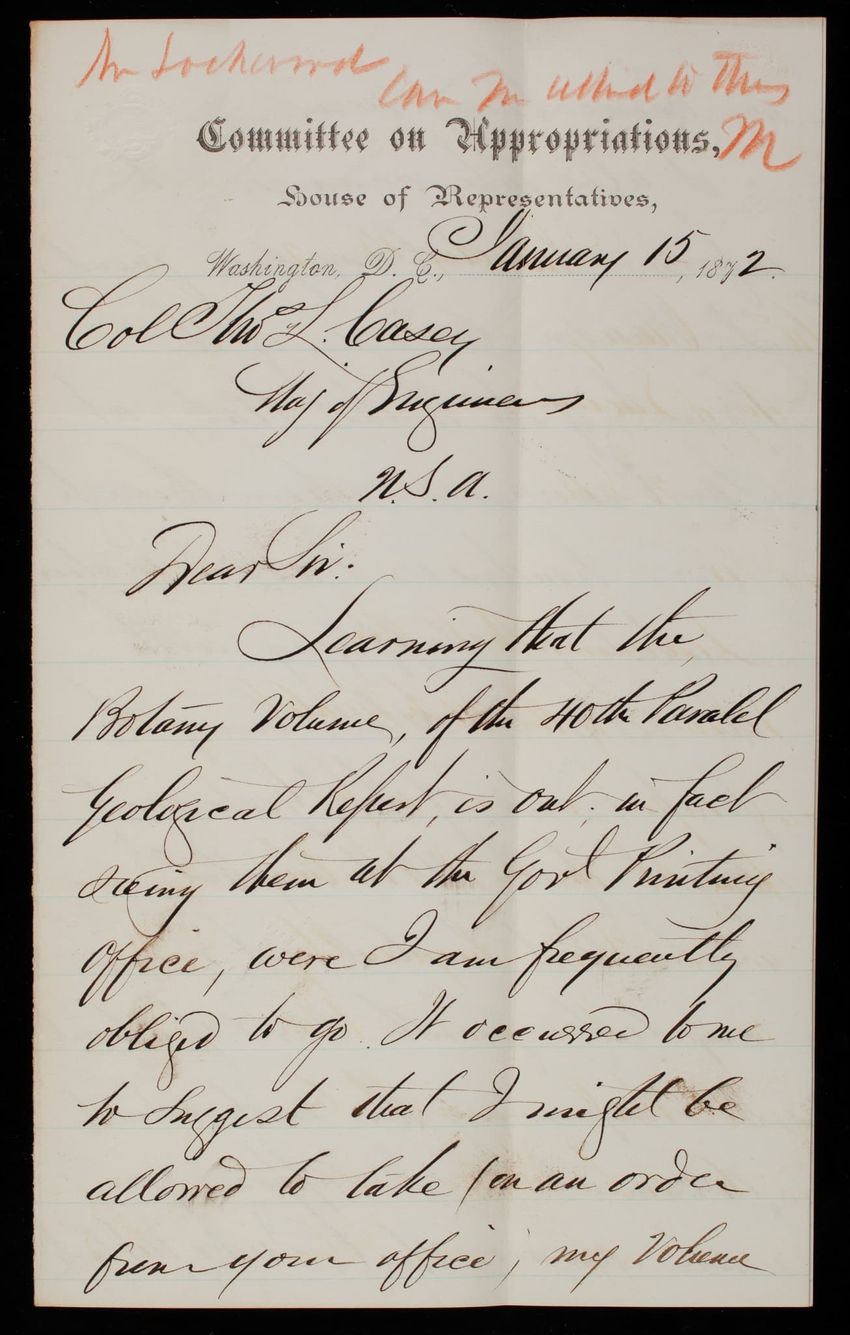 Mr Lockwood
Can we attend to this
M
Committee on Appropriations,
House of Representatives,
Washington, D. C., January 15, 1872.
Col Thos L. Casey
Maj of Engineers
U.S.A.
Dear Sir:
Learning that the
Botany Volume, of the 40th Paralel
Geological Report, is out: in fact
seeing them at the Govt Printing
office, were I am frequently
obliged to go. It occurred to me
to suggest that I might be
allowed to take (on an order
from your office, my Volume